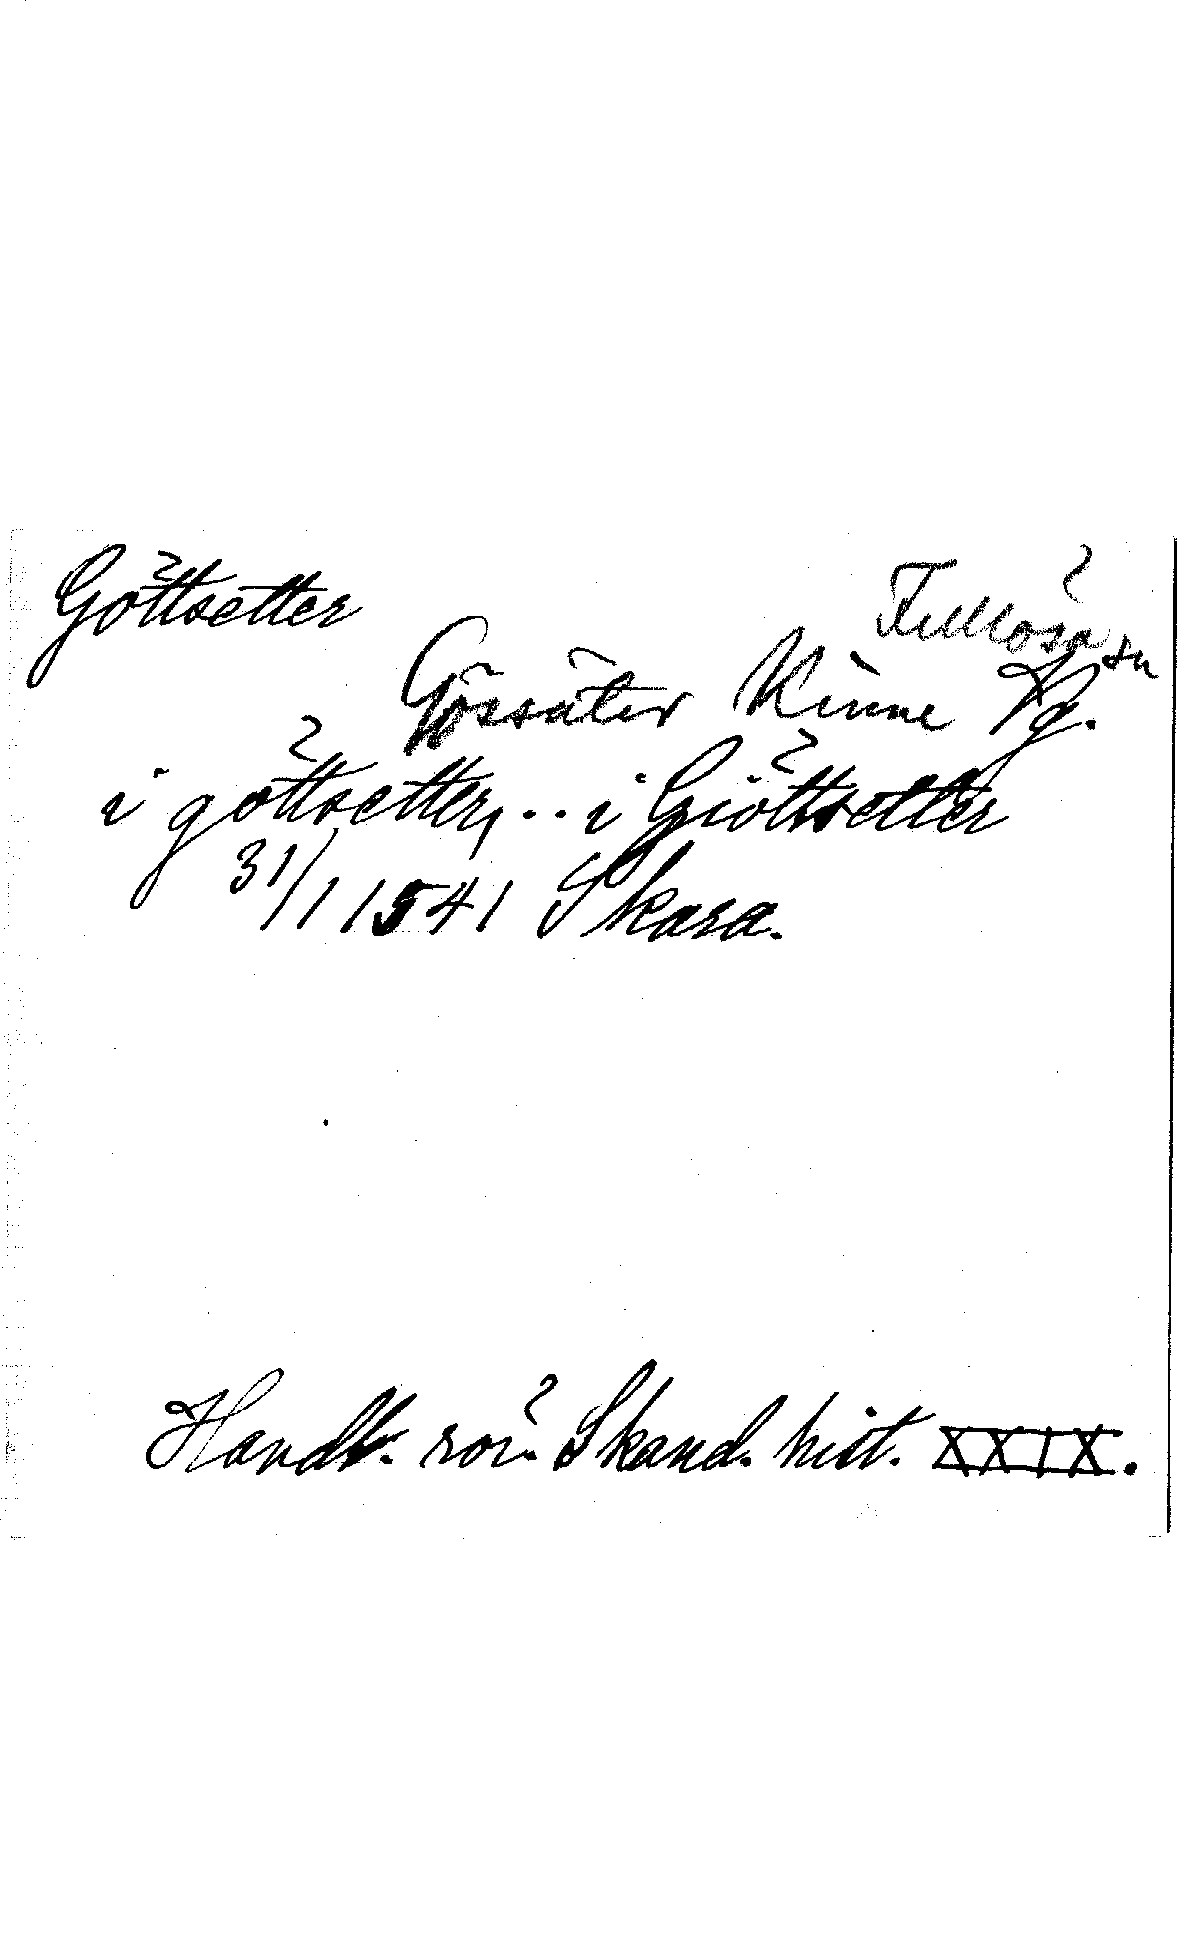 Göttsetter
Fullösa sn
Gössäter Kinne Vg.
i göttsetter, .. i Giöttsetter
31/1 1541 Skara.
Handl. rör. Skand. hist. XXIX.